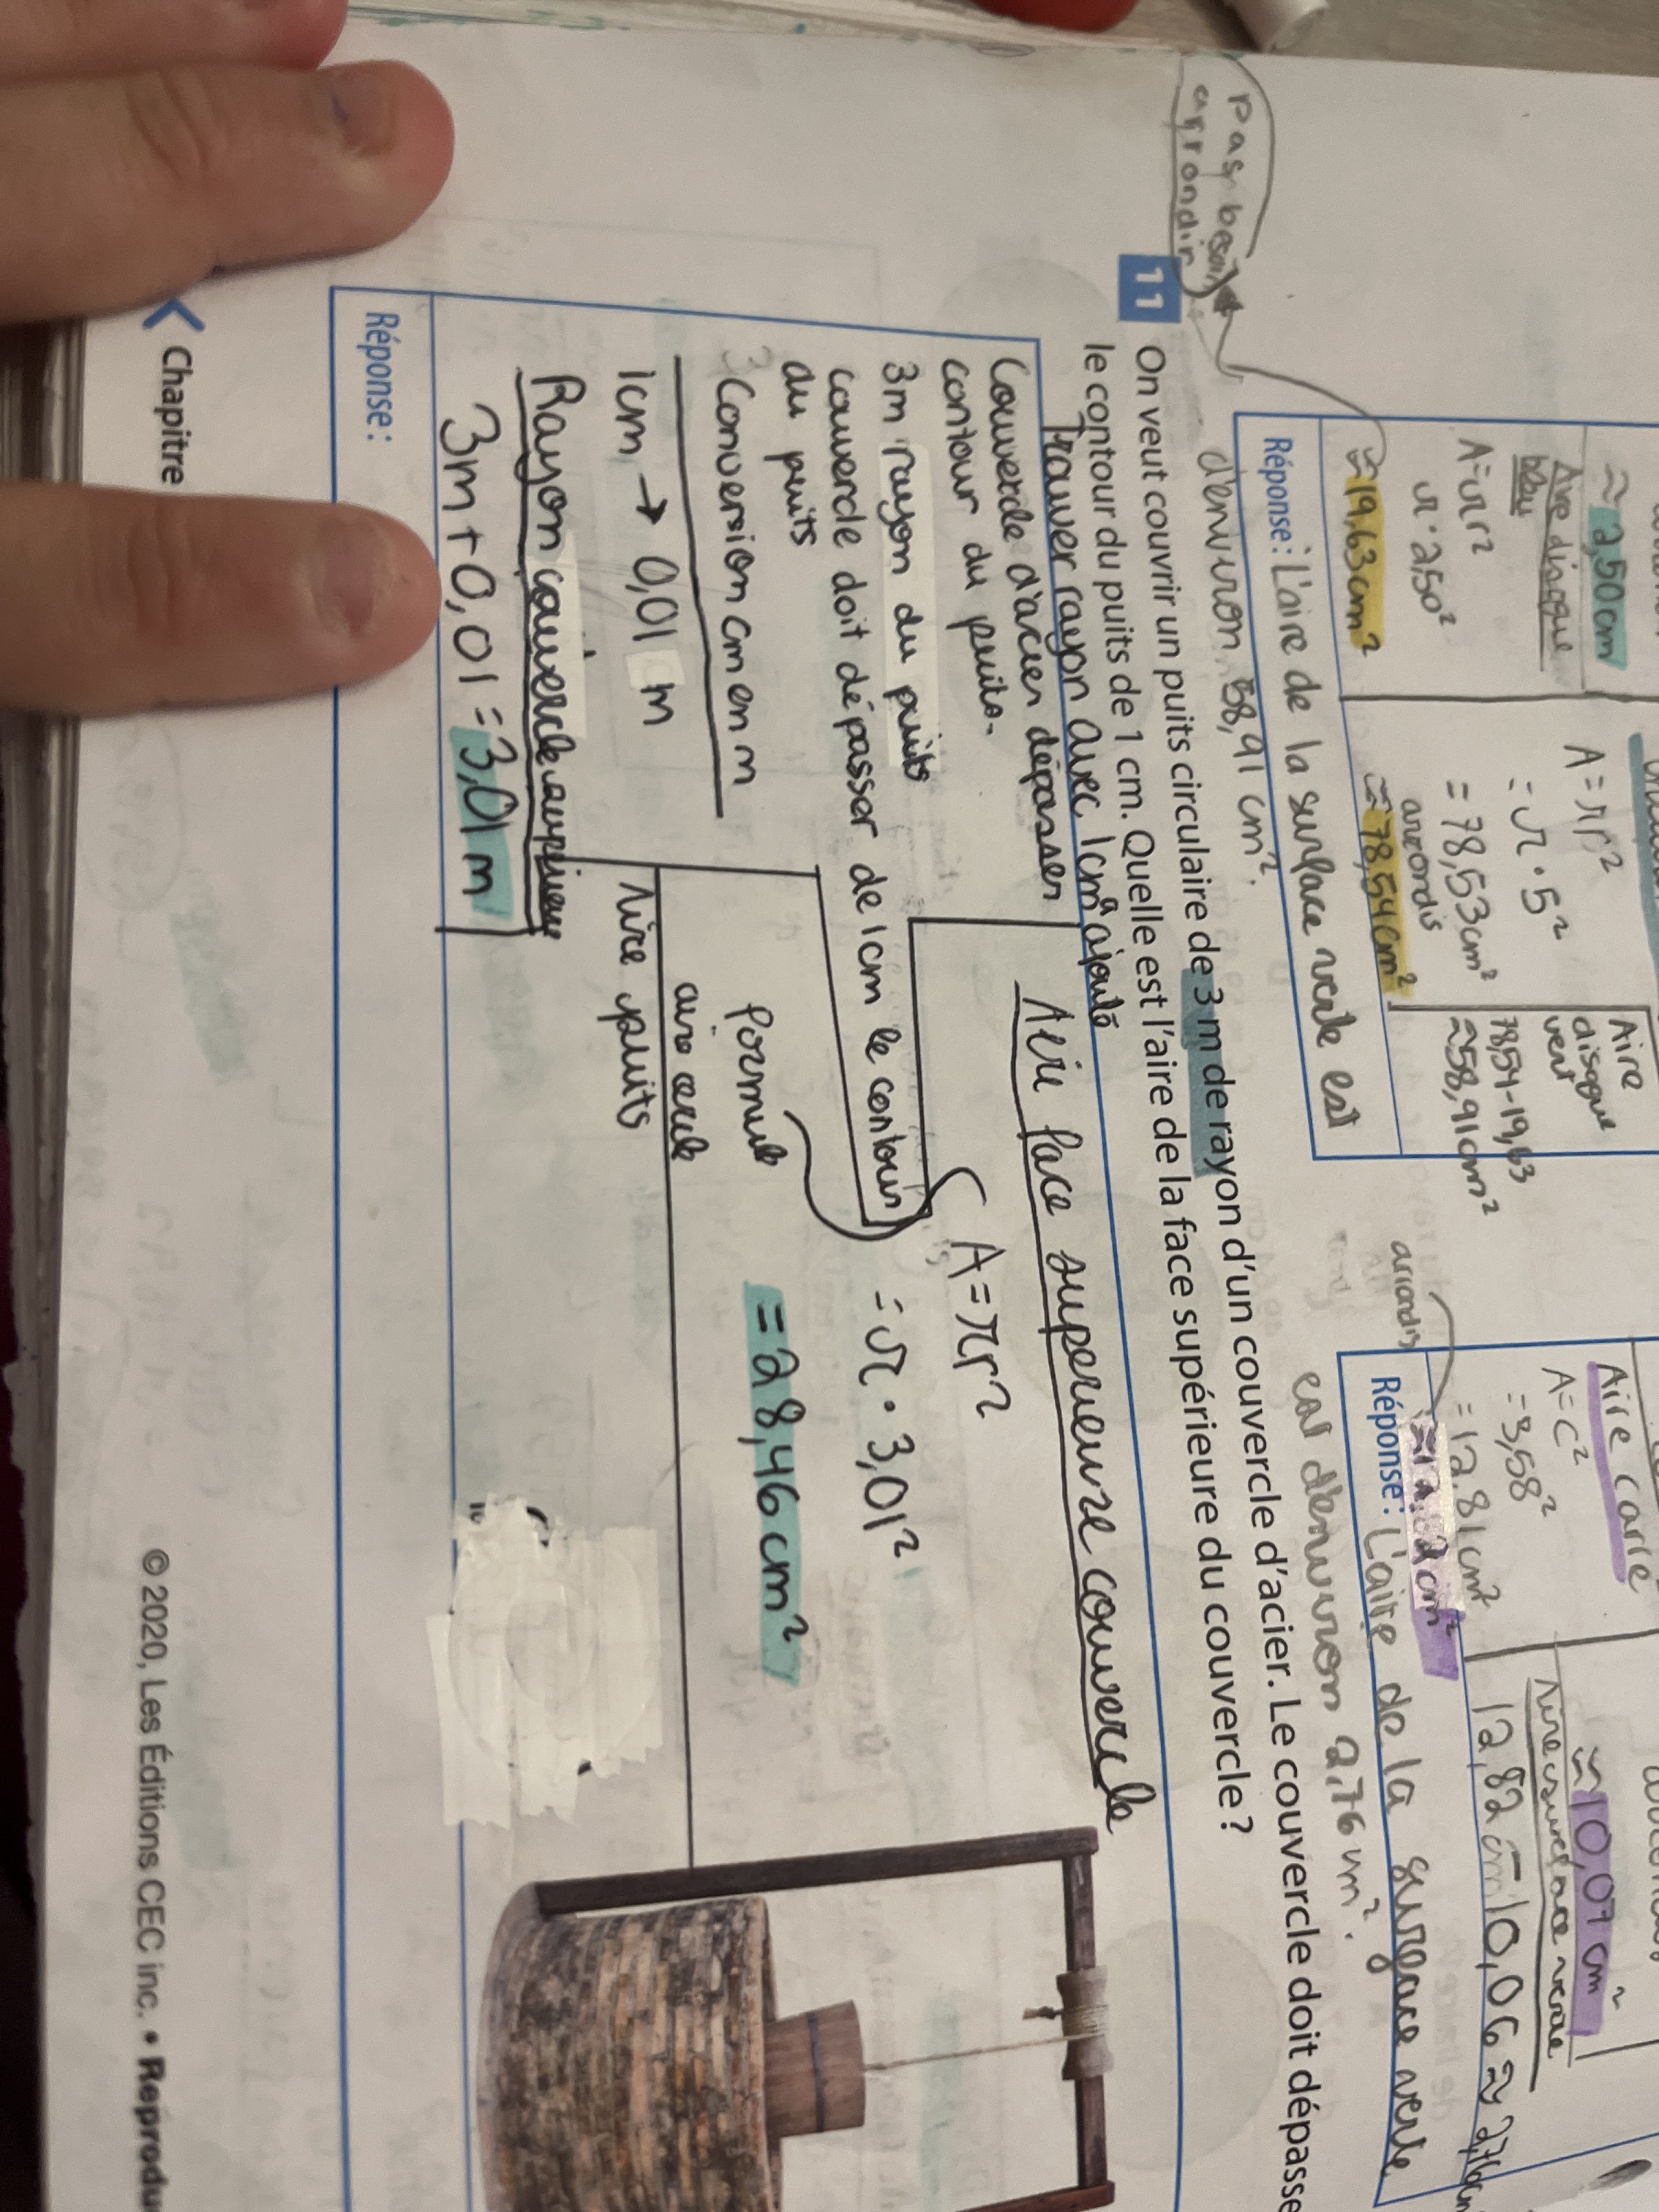 pas besoin
arrondir
≈ 2,50 cm
Aire disque
bleu
A = πr²
π · 2,50²
≈ 19,63 cm²
A = πr²
= π · 5²
= 78,53 cm²
arrondis
≈ 78,54 cm²
Aire
disque
vert
78,54-19,63
≈ 58,91 cm²
Réponse : L'aire de la surface verte est
d'environ 58,91 cm².
Aire carré
A = c²
= 3,58²
= 12,81 cm²
arrondis
≈ 12,82 cm²
≈ 10,07 cm²
Aire surface verte
12,82 cm - 10,06 ≈ 2,76 cm
Réponse : L'aire de la surface verte
est d'environ 2,76 m².
11 On veut couvrir un puits circulaire de 3 m de rayon d'un couvercle d'acier. Le couvercle doit dépasse
le contour du puits de 1 cm. Quelle est l'aire de la face supérieure du couvercle ?
Trouver rayon avec 1cm ajouté
Couvercle d'acier dépasser
contour du puits.
3m rayon du puits
couvercle doit dépasser de 1cm le contour
du puits
Conversion cm en m
1cm → 0,01 m
Rayon couvercle supérieur
3m + 0,01 = 3,01 m
Aire face supérieure couvercle
A = πr²
= π · 3,01²
= 28,46 cm²
formule
aire cercle
Aire puits
Réponse :
Chapitre
© 2020, Les Éditions CEC inc. • Reprodu